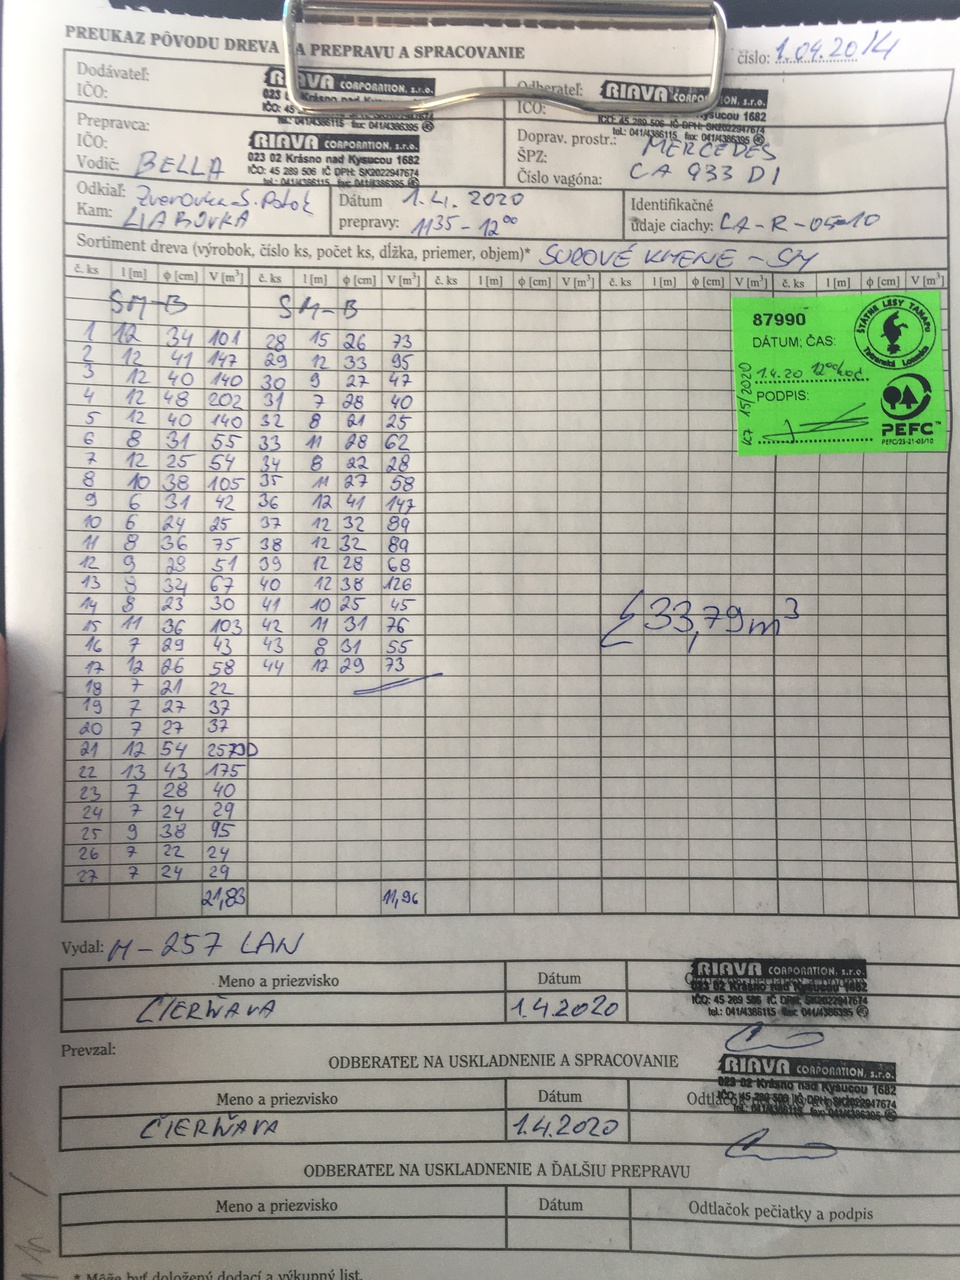 PREUKAZ PÔVODU DREVA A PREPRAVU A SPRACOVANIE
číslo: 1.04.2014
Dodávateľ:
IČO:
RIAVA CORPORATION, s.r.o.
Odberateľ:
IČO:
RIAVA
Kysucou 1682
IČO: 45 289 506 IČ DPH: SK2022947674
tel.: 041/4386115 fax: 041/4386395
Prepravca:
IČO:
Vodič: BELLA
RIAVA CORPORATION, s.r.o.
023 02 Krásno nad Kysucou 1682
IČO: 45 289 506 IČ DPH: SK2022947674
tel.: 041/4386115 fax: 041/4386395
Doprav. prostr.: MERCEDES
ŠPZ: CA 933 DI
Číslo vagóna:
Odkiaľ: Zverovka-S. Potok
Kam: LIABOVKA
Dátum prepravy: 1.4. 2020
1135 - 12⁰⁰
Identifikačné
údaje ciachy: LA-R-05-10
Sortiment dreva (výrobok, číslo ks, počet ks, dĺžka, priemer, objem)* SUROVÉ KMENE - SM
č. ks l [m] ϕ [cm] V [m³] č. ks l [m] ϕ [cm] V [m³] č. ks l [m] ϕ [cm] V [m³] č. ks l [m] ϕ [cm] V [m³] č. ks l [m] ϕ [cm] V [m³]
SM-B SM-B
1 12 34 101 28 15 26 73
2 12 41 147 29 12 33 95
3 12 40 140 30 9 27 47
4 12 48 202 31 7 28 40
5 12 40 140 32 8 21 25
6 8 31 55 33 11 28 62
7 12 25 54 34 8 22 28
8 10 38 105 35 11 27 58
9 6 31 42 36 12 41 147
10 6 24 25 37 12 32 89
11 8 36 75 38 12 32 89
12 9 28 51 39 12 28 68
13 8 34 67 40 12 38 126
14 8 23 30 41 10 25 45
15 11 36 103 42 11 31 76
16 7 29 43 43 8 31 55
17 12 26 58 44 12 29 73
18 7 21 22
19 7 27 37
20 7 27 37
21 12 54 257 3D
22 13 43 175
23 7 28 40
24 7 24 29
25 9 38 95
26 7 22 24
27 7 24 29
21,83 11,96
Σ 33,79 m³
87990
DÁTUM; ČAS:
1.4.20 12⁰⁰ hod.
PODPIS:
15/2020
ŠTÁTNE LESY TANAPU
Tatranská Lomnica
PEFC™
PEFC/23-21-03/10
Vydal: M-257 LAN
Meno a priezvisko Dátum
ČIERŇAVA 1.4.2020
RIAVA CORPORATION, s.r.o.
023 02 Krásno nad Kysucou 1682
IČO: 45 289 506 IČ DPH: SK2022947674
tel.: 041/4386115 fax: 041/4386395
Prevzal:
ODBERATEĽ NA USKLADNENIE A SPRACOVANIE
Meno a priezvisko Dátum
ČIERŇAVA 1.4.2020
RIAVA CORPORATION, s.r.o.
023 02 Krásno nad Kysucou 1682
IČO: 45 289 506 IČ DPH: SK2022947674
tel.: 041/4386115 fax: 041/4386395
ODBERATEĽ NA USKLADNENIE A ĎALŠIU PREPRAVU
Meno a priezvisko Dátum Odtlačok pečiatky a podpis
* Môže byť doložený dodací a výkupný list.